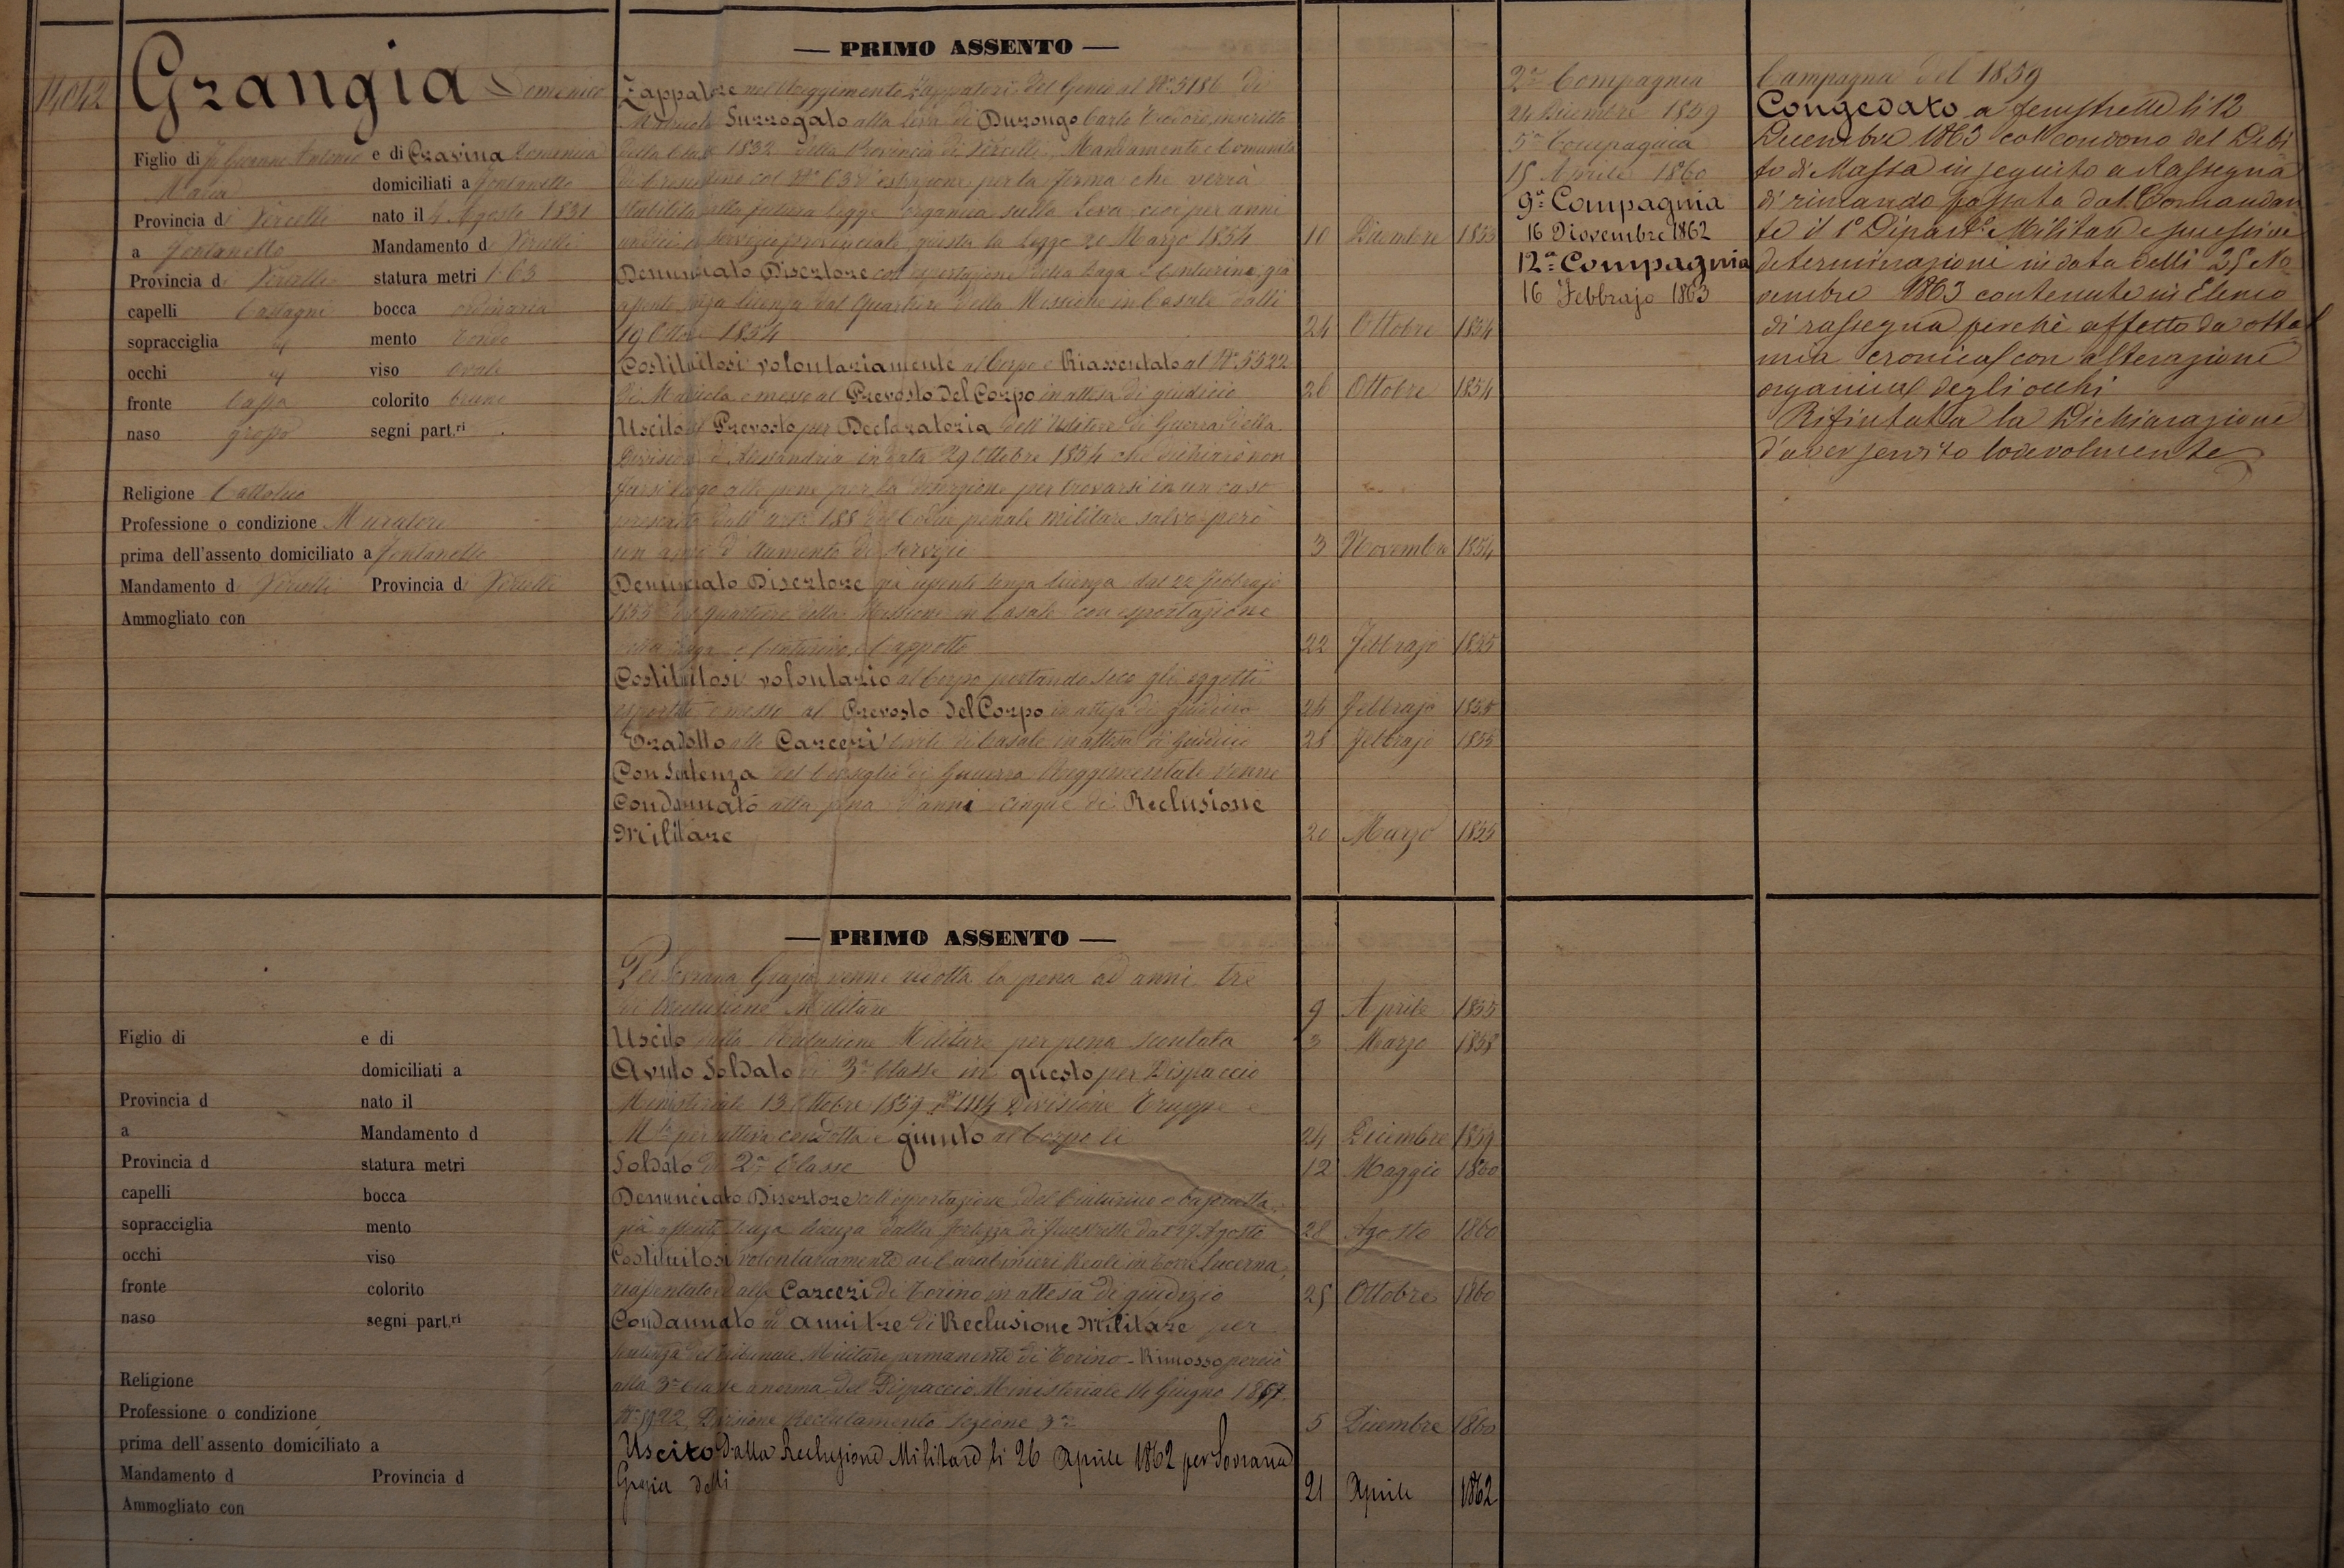 14042
Grangia Domenico
Figlio di fu Giovanni Antonio e di Gravina Domenica
Maria domiciliati a Fontanetto
Provincia di Vercelli nato il 4 Agosto 1831
a Fontanetto Mandamento d Vercelli
Provincia di Vercelli statura metri 1.63
capelli Castagni bocca ordinaria
sopracciglia id mento tondo
occhi id viso ovale
fronte bassa colorito bruno
naso grosso segni part.ri
Religione Cattolica
Professione o condizione Muratore
prima dell'assento domiciliato a Fontanetto
Mandamento di Vercelli Provincia di Vercelli
Ammogliato con
— PRIMO ASSENTO —
Zappatore nel Reggimento Zappatori del Genio al N.° 5186 di
Matricola Surrogato alla Leva di Durongo Carlo Teodoro, inscritto
della Classe 1832 della Provincia di Vercelli, Mandamento e Comunità
di Crescentino col N.° 63 d'estrazione per la ferma che verrà
stabilita dalla futura legge organica sulla Leva cioè per anni
undici in servizio provinciale giusta la Legge 20 Marzo 1854 10 Dicembre 1853
Denunciato Disertore con esportazione della Daga e Centurino, già
assente senza licenza dal Quartiere della Missione in Casale dalli
19 Ottobre 1854 24 Ottobre 1854
Costituitosi volontariamente al Corpo e Riassentato al N.° 5522
di Matricola e messo al Prevosto del Corpo in attesa di giudicio 26 Ottobre 1854
Uscito dal Prevosto per Declaratoria dell'Uditore di Guerra della
Divisione d'Alessandria in data 29 Ottobre 1854 che dichiarò non
farsi luogo alle pene per la diserzione per trovarsi in un caso
prescritto dall'art.° 188 del Codice penale militare salvo però
un anno d'aumento di servizio 3 Novembre 1854
Denunciato Disertore già assente senza licenza dal 22 Febbrajo
1855 dal quartiere della Missione in Casale con esportazione
della daga e Centurino, Cappotto 22 Febbrajo 1855
Costituitosi volontario al Corpo portando seco gli oggetti
esportati e messo al Prevosto del Corpo in attesa di giudicio 24 Febbrajo 1855
Tradotto alle Carceri Civili di Casale in attesa di giudicio 28 Febbrajo 1855
Con Sentenza del Consiglio di Guerra Reggimentale venne
Condannato alla pena d'anni cinque di Reclusione
Militare 20 Marzo 1855
2.a Compagnia
24 Dicembre 1859
5.a Compagnia
15 Aprile 1860
9.a Compagnia
16 Novembre 1862
12.a Compagnia
16 Febbrajo 1863
Campagna del 1859
Congedato a Fenestrelle li 12
Decembre 1863 col condono del Debi
to di Massa in seguito a Rassegna
di rimando passata dal Comandan
te il 1° Dipart.° Militare e successive
determinazioni in data delli 25 No
vembre 1863 contenute in Elenco
di rassegna perchè affetto da oftal
mia cronica con alterazione
organica degli occhi
Rifiutata la Dichiarazione
d'aver servito lodevolmente
— PRIMO ASSENTO —
Per Sovrana Grazia venne ridotta la pena ad anni tre
di Reclusione Militare 9 Aprile 1855
Uscito dalla Reclusione Militare per pena scontata 3 Marzo 1858
Avuto Soldato di 3.a Classe in questo per Dispaccio
Ministeriale 13 Ottobre 1859 Divisione Truppe e
per cattiva condotta e giunto al Corpo li 24 Dicembre 1859
Soldato di 2.a Classe 12 Maggio 1860
Denunciato Disertore coll'esportazione del Centurino e bajonetta,
già assente senza licenza dalla Fortezza di Fenestrelle dal 27 Agosto 28 Agosto 1860
Costituitosi volontariamente ai Carabinieri Reali in Torre Lucerna,
riassentato e alle Carceri di Torino in attesa di giudizio 25 Ottobre 1860
Condannato ad anni tre di Reclusione Militare per
sentenza del Tribunale Militare permanente di Torino - Rimosso perciò
alla 3.a Classe a norma del Dispaccio Ministeriale 14 Giugno 1857.
Divisione Reclutamento Sezione 3.a 5 Dicembre 1860
Uscito dalla Reclusione Militare li 26 Aprile 1862 per Sovrana
Grazia delli 21 Aprile 1862
Figlio di e di
domiciliati a
Provincia d nato il
a Mandamento d
Provincia d statura metri
capelli bocca
sopracciglia mento
occhi viso
fronte colorito
naso segni part.ri
Religione
Professione o condizione
prima dell'assento domiciliato a
Mandamento d Provincia d
Ammogliato con